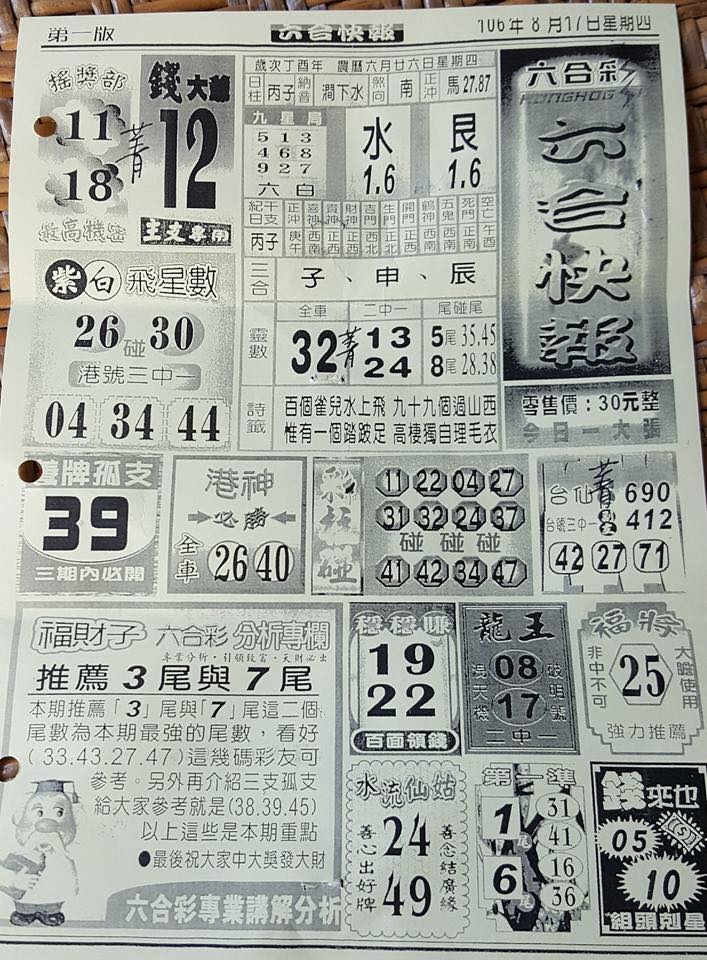 第一版
六合快報
106年8月17日星期四
搖獎部
11
18
最高機密
錢大爺
12
菁
歲次丁酉年 農曆六月廿六日星期四
日柱 丙子 納音 澗下水 煞向 南 正沖 馬 27.87
九星局
5 1 3
4 6 8
9 2 7
六白
水
1.6
艮
1.6
紀日 干支 正沖 喜神 貴神 財神 吉門 生門 開門 鶴神 五鬼 死門 空亡
丙子
三合 子、申、辰
全車 二中一 尾碰尾
靈數
32
菁
13
24
5尾 35.45
8尾 28.38
詩籤
百個雀兒水上飛 九十九個過山西
惟有一個踏跛足 高棲獨自理毛衣
六合彩
六合快報
零售價：30元整
今日一大張
紫白飛星數
26 碰 30
港號三中一
04 34 44
牌孤支
39
三期內必開
港神
必勝
全車
26 40
彩柱碰
11 22 04 27
31 32 24 37
碰 碰 碰
41 42 34 47
台仙
菁
690
台號三中一
412
42 27 71
福財子 六合彩 分析專欄
專業分析．引領致富．天財必出
推薦 3 尾與 7 尾
本期推薦「3」尾與「7」尾這二個
尾數為本期最強的尾數，看好
(33.43.27.47)這幾碼彩友可
參考。另外再介紹三支孤支
給大家參考就是(38.39.45)
以上這些是本期重點
●最後祝大家中大獎發大財
六合彩專業講解分析
穩穩賺
19
22
百面領錢
龍王
洩天機
08
17
破明號
二中一
福將
非中不可
25
大膽使用
強力推薦
水流仙姑
善心出好牌
24
49
善念結廣緣
第一準
1尾
6尾
31
41
16
36
錢來也
05
10
組頭剋星